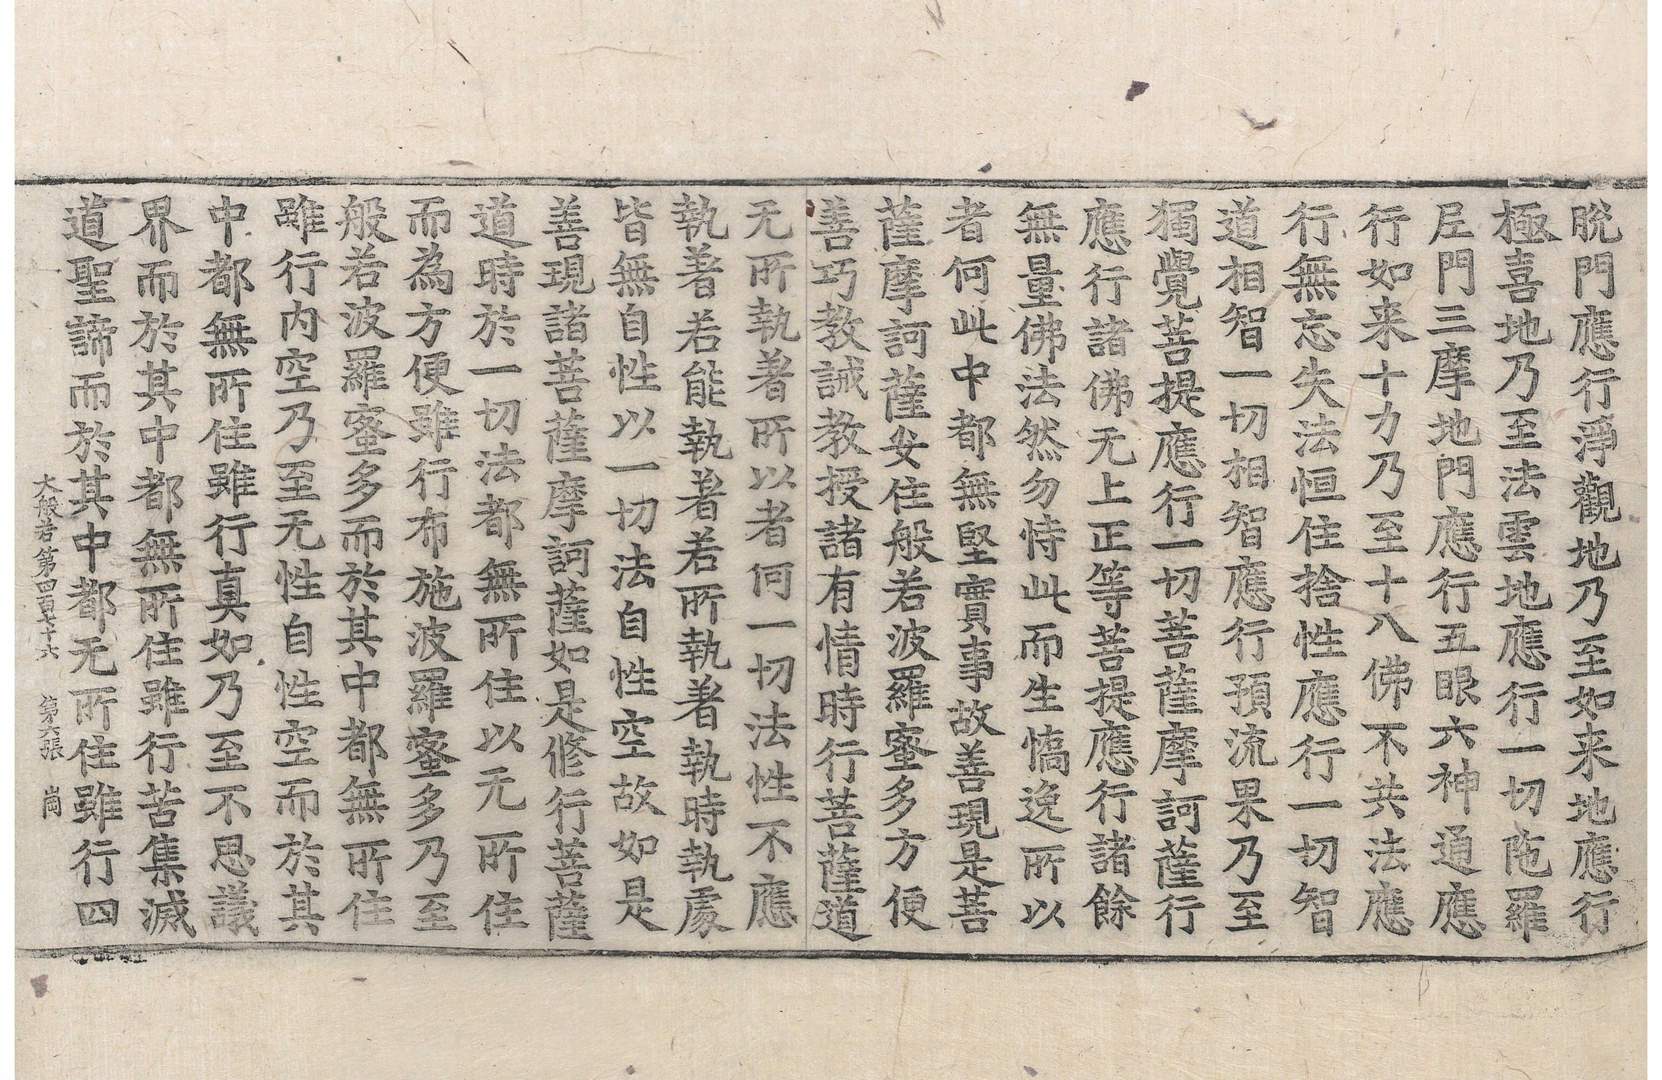 脫門應行淨觀地乃至如来地應行
極喜地乃至法雲地應行一切陁羅
尼門三摩地門應行五眼六神通應
行如来十力乃至十八佛不共法應
行無忘失法恒住捨性應行一切智
道相智一切相智應行預流果乃至
獨覺菩提應行一切菩薩摩訶薩行
應行諸佛无上正等菩提應行諸餘
無量佛法然勿恃此而生憍逸所以
者何此中都無堅實事故善現是菩
薩摩訶薩安住般若波羅蜜多方便
善巧教誡教授諸有情時行菩薩道
无所執著所以者何一切法性不應
執著若能執著若所執著執時執處
皆無自性以一切法自性空故如是
善現諸菩薩摩訶薩如是修行菩薩
道時於一切法都無所住以无所住
而為方便雖行布施波羅蜜多乃至
般若波羅蜜多而於其中都無所住
雖行内空乃至无性自性空而於其
中都無所住雖行真如乃至不思議
界而於其中都無所住雖行苦集滅
道聖諦而於其中都无所住雖行四
大般若第四百七十六 第六張 崗